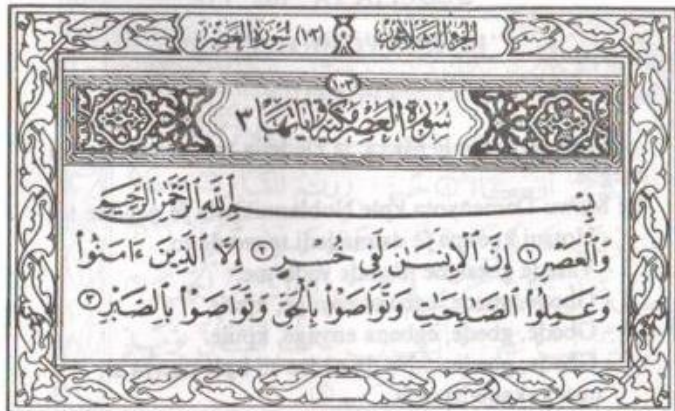 الجزء الثلاثون (١٣) سورة العصر
١٠٣
سورة العصر مكية وآياتها ٣
بِسْمِ اللَّهِ الرَّحْمَٰنِ الرَّحِيمِ
وَالْعَصْرِ ١ إِنَّ الْإِنسَٰنَ لَفِي خُسْرٍ ٢ إِلَّا الَّذِينَ ءَامَنُوا۟
وَعَمِلُوا۟ الصَّٰلِحَٰتِ وَتَوَاصَوْا۟ بِالْحَقِّ وَتَوَاصَوْا۟ بِالصَّبْرِ ٣